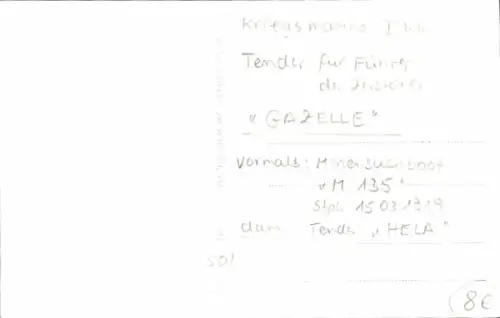 Kriegsmarine
Tender für Führer
der
"GAZELLE"
vormals: Minensuchboot
"M 135"
Stpl. 15.03.1919
dann Tender "HELA"
501
8€